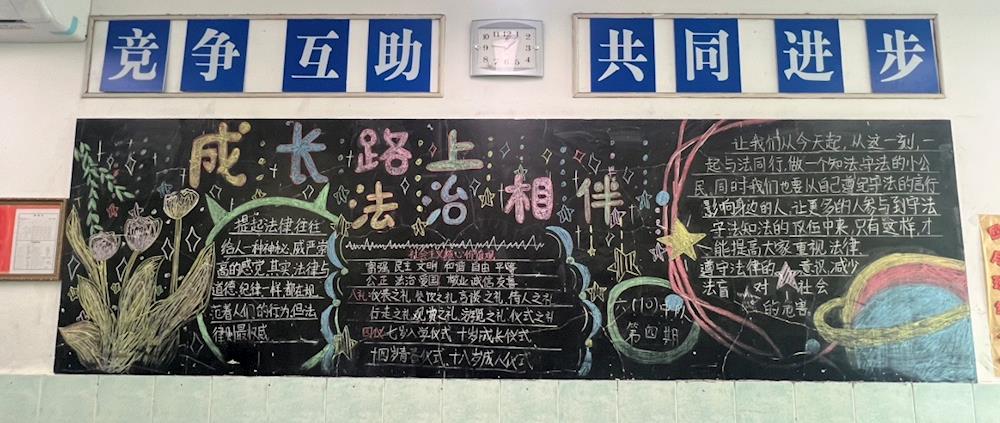 竞争互助
共同进步
成长路上
法治相伴
提起法律往往
给人一种神秘、威严、崇
高的感觉,其实法律与
道德、纪律一样都在规
范着人们的行为,但法
律则最权威
社会主义核心价值观
富强 民主 文明 和谐 自由 平等
公正 法治 爱国 敬业 诚信 友善
八礼:仪表之礼 餐饮之礼 言谈之礼 待人之礼
行走之礼 观赏之礼 游览之礼 仪式之礼
四仪:七岁入学仪式 十岁成长仪式
十四岁青春仪式 十八岁成人仪式
六(10)中队
第四期
让我们从今天起,从这一刻,一
起与法同行,做一个知法,守法的小公
民,同时我们也要从自己遵守法的言行
影响身边的人,让更多的人参与到守法
学法知法的队伍中来,只有这样才
能提高大家重视法律
遵守法律的 意识,减少
法盲 对 社会
的危害